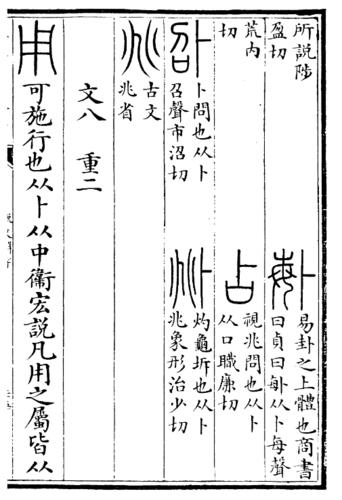 所説陟
盈切
𠧩
易卦之上體也商書
曰貞曰𠧩从卜每聲
荒内
切
占
視兆問也从卜
从口職廉切
𠧙
卜問也从卜
召聲市沼切
𠧞
灼龜坼也从卜
兆象形治少切
兆
古文
兆省
文八 重二
用可施行也从卜从中衞宏説凡用之屬皆从